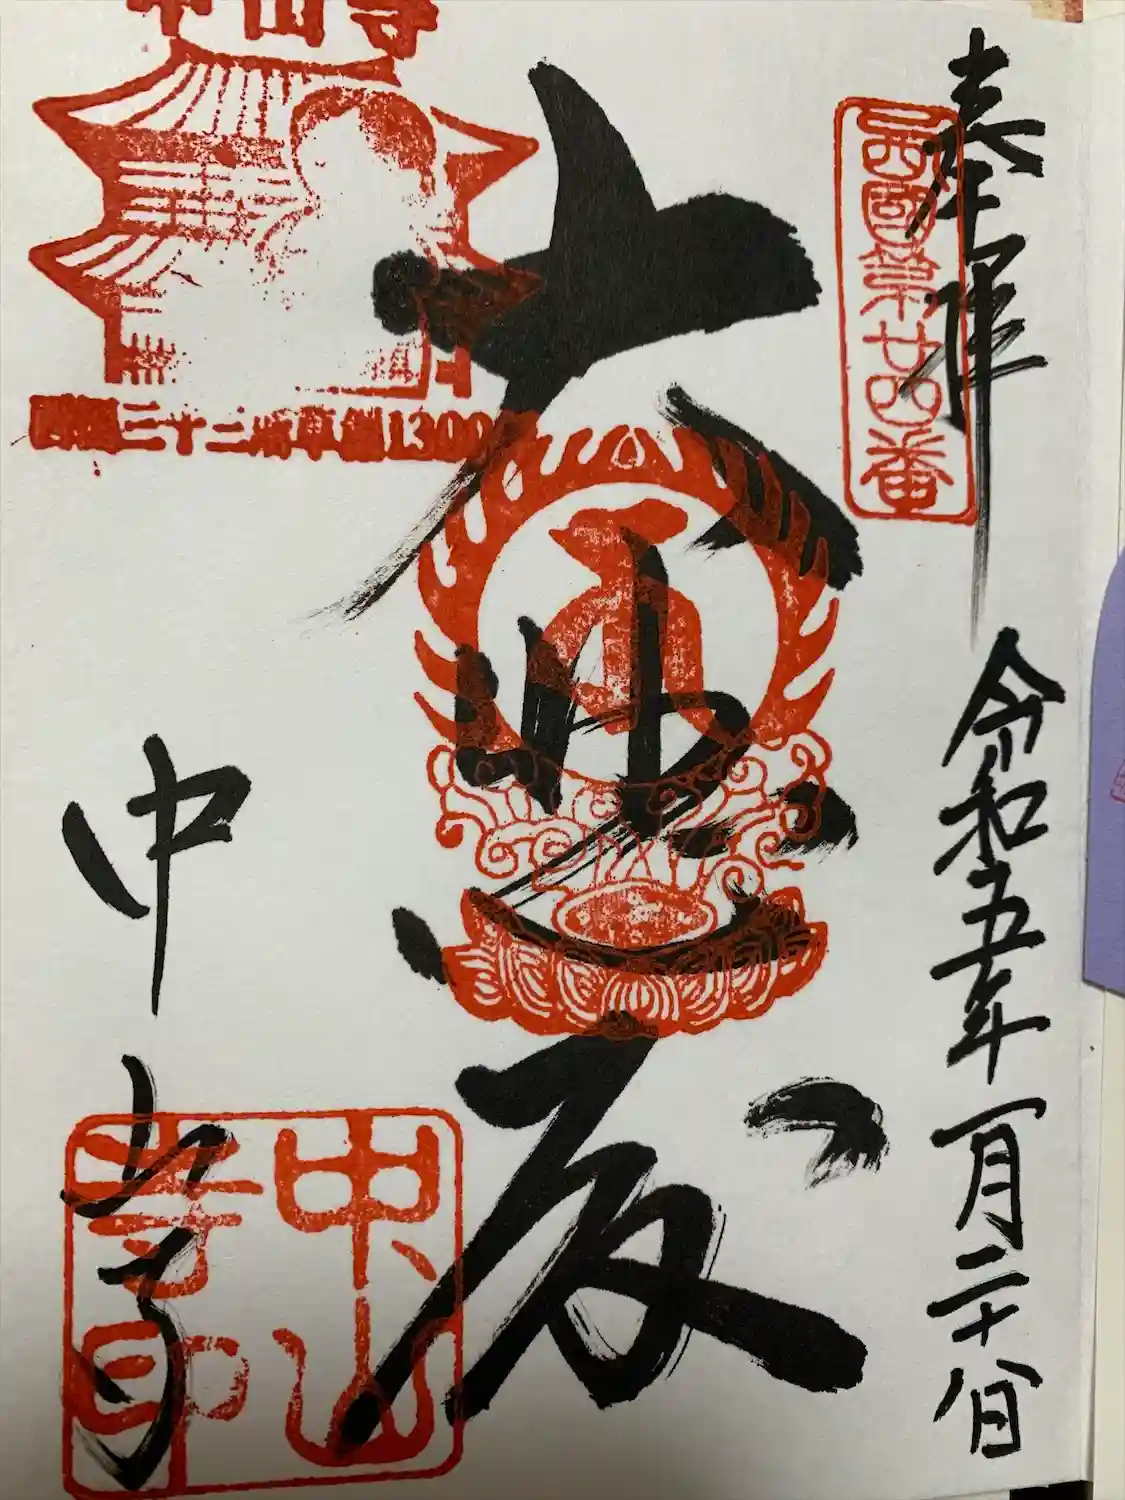 奉拝
令和五年一月二十八日
西國第廿四番
大悲殿
中山寺
中山寺
西国三十三所草創1300
中山寺印